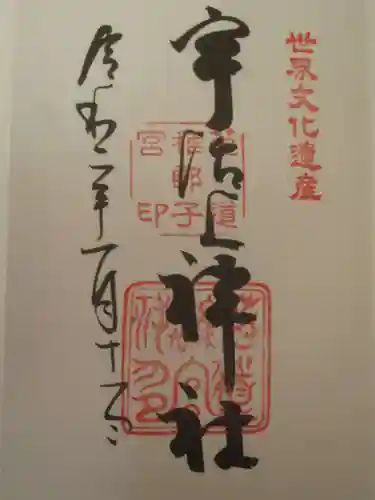 世界文化遺産
宇治上神社
菟道
稚郎子
宮印
令和二年一月十六日